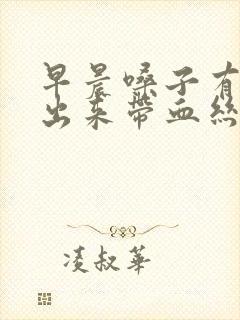 早晨嗓子有
出来带血丝
凌叔华